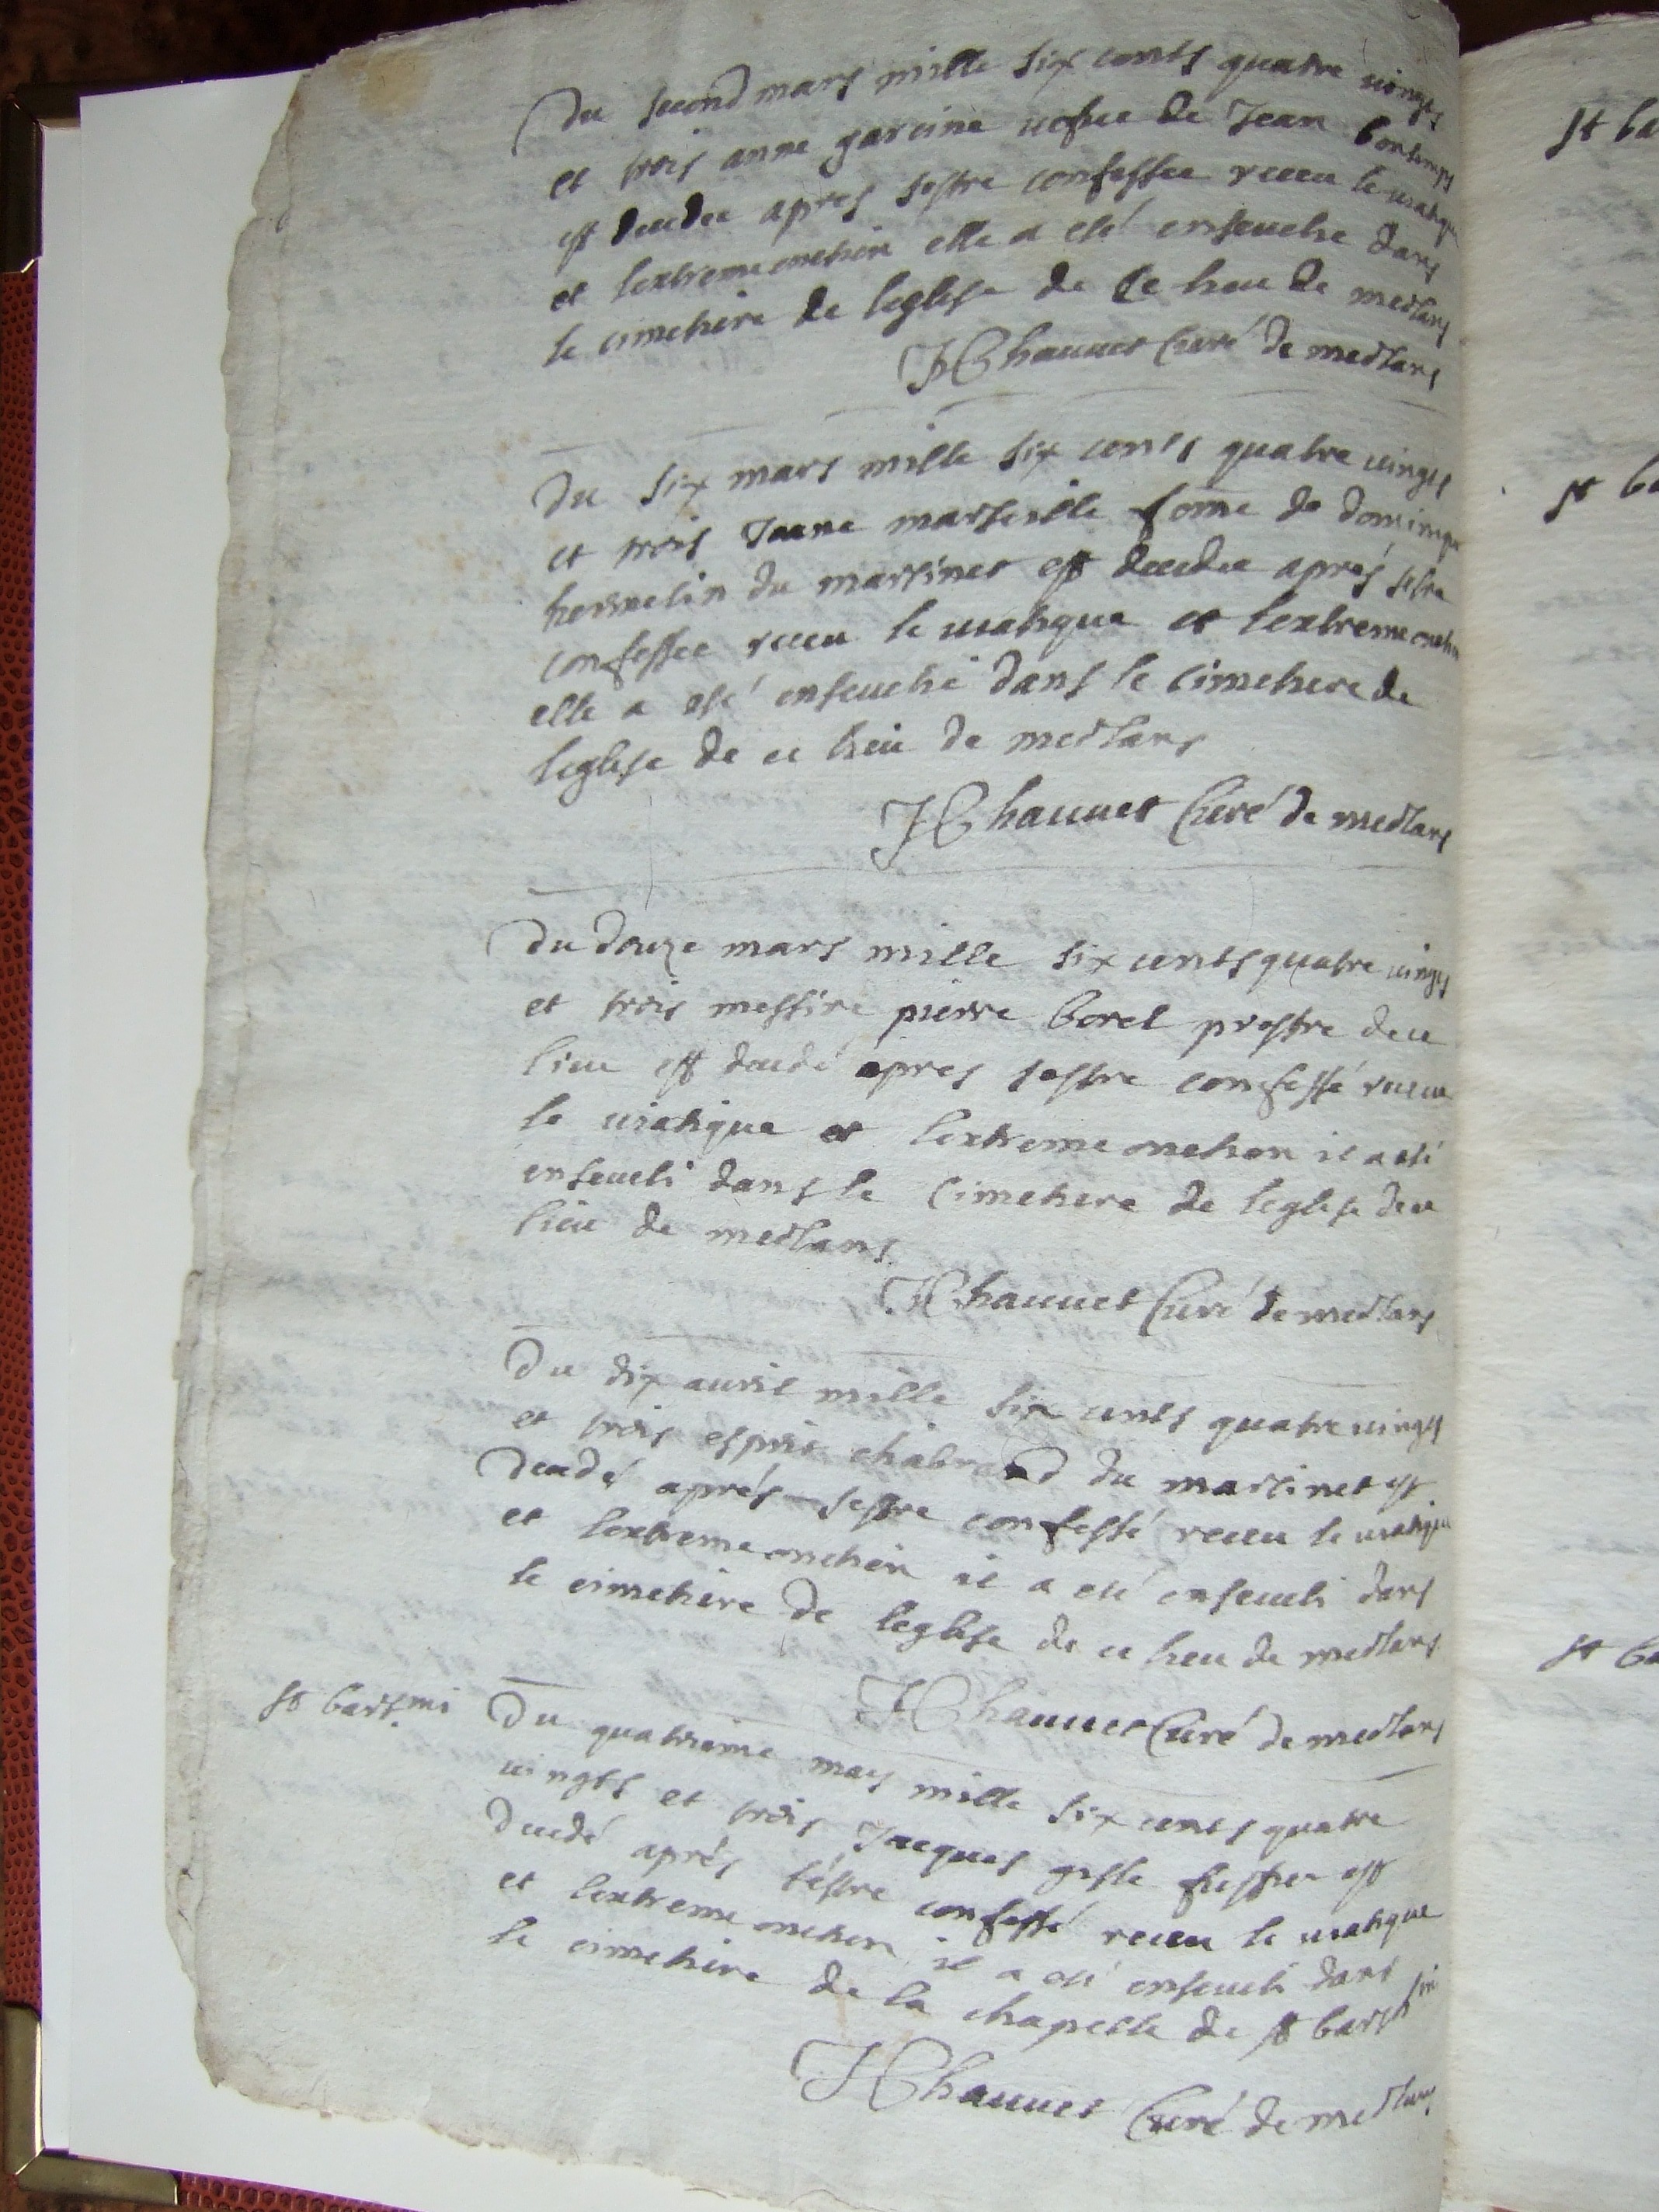 Du second mars mille six cents quatre vingts
et trois anne garcine vefue de Jean bontemps
est decedee apres sestre confessee receu le viatique
et lextreme onction elle a esté ensevelie dans
le cimetiere de leglise de ce lieu de meolans
JChauvet Curé de meolans
Du six mars mille six cents quatre vingts
et trois Jeane marseille fome de dominique
hermelin du martinet est decedee aprés sestre
confessee receu le viatique et lextreme onction
elle a esté ensevelie dans le cimetiere de
leglise de ce lieu de meolans
JChauvet Curé de meolans
Du douze mars mille six cents quatre vingts
et trois messire pierre borel prestre de ce
lieu est decedé apres sestre confessé receu
le viatique et lextreme onction il a esté
enseveli dans le cimetiere de leglise de ce
lieu de meolans
JChauvet Curé de meolans
Du dix avril mille six cents quatre vingts
et trois esprit chabrand du martinet est
decedé aprés sestre confessé receu le viatique
et lextreme onction il a esté enseveli dans
le cimetiere de leglise de ce lieu de meolans
JChauvet Curé de meolans
st bart.mi
Du quatrieme may mille six cents quatre
vingts et trois Jacques est
decedé aprés séstre confessé receu le viatique
et lextreme onction il a esté enseveli dans
le cimetiere de la chapelle de st barth mi
JChauvet Curé de meolans
st ba
st ba
st ba